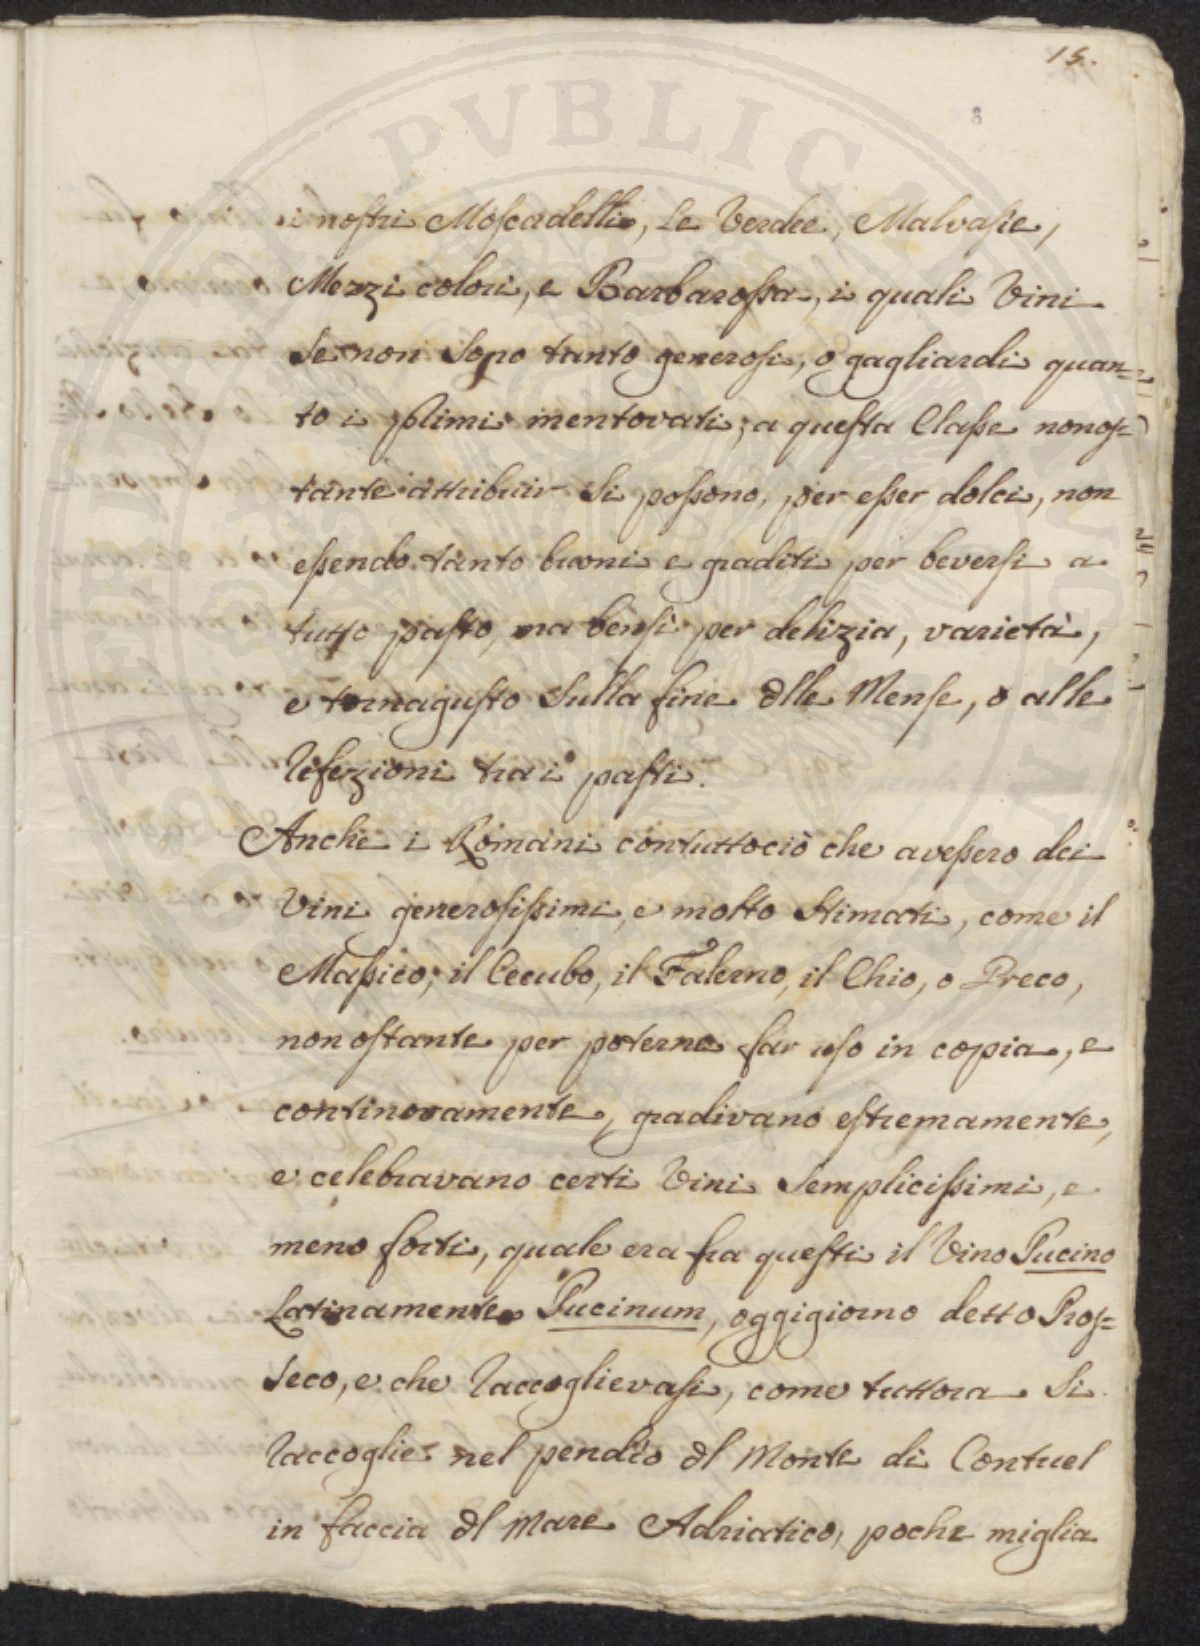 15.
8
i nostri Moscadelli, Le Verdee, Malvasie,
Mezzi colori, e Barbarossa, i quali Vini
se non sono tanto generosi, o gagliardi quan=
to i primi mentovati, a questa Classe nonos=
tante attribuir si possono, per esser dolci, non
essendo tanto buoni e graditi per beversi a
tutto pasto, ma bensì per delizia, varietà,
e tornagusto sulla fine dlle Mense, o alle
refezioni tra i pasti.
Anche i Romani contuttociò che avessero dei
Vini generosissimi, e molto stimati, come il
Massico, il Cecubo, il Falerno, il Chio, o Greco,
non ostante per poterne far uso in copia, e
continovamente, gradivano estremamente,
e celebravano certi Vini semplicissimi, e
meno forti, quale era fra questi il Vino Pucino
Latinamente Pucinum, oggigiorno detto Pros=
seco, e che raccoglievasi, come tuttora si
raccoglie nel pendìo dl Monte di Contuel
in faccia dl Mare Adriatico, poche miglia